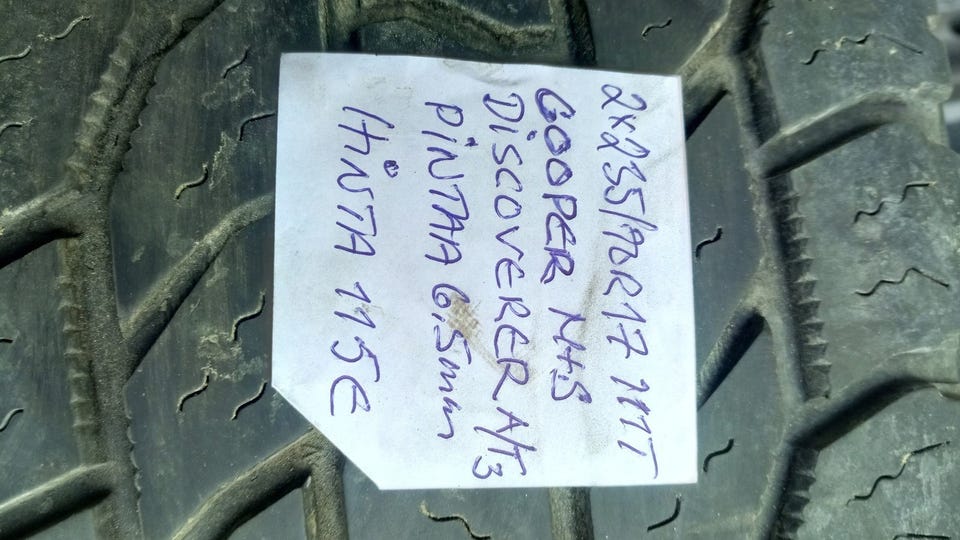 2x235/70R17 111T
COOPER M+S
DiSCOVERER A/T3
PiNTAA 6.5mm
HiNTA 115€